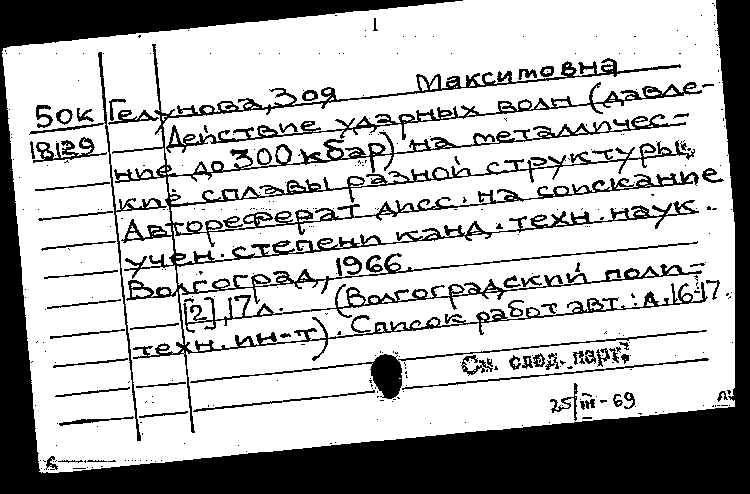 1
50к Гелунова, Зоя Максимовна
18129 Действие ударных волн (давле-
ние до 300 кбар) на металличес-
кие сплавы разной структуры.
Автореферат дисс. на соискание
учен. степени канд. техн. наук.
Волгоград, 1966.
[2], 17 л. (Волгоградский поли-
техн. ин-т). Список работ авт.: л. 16-17.
См. след. карт.
25/III-69